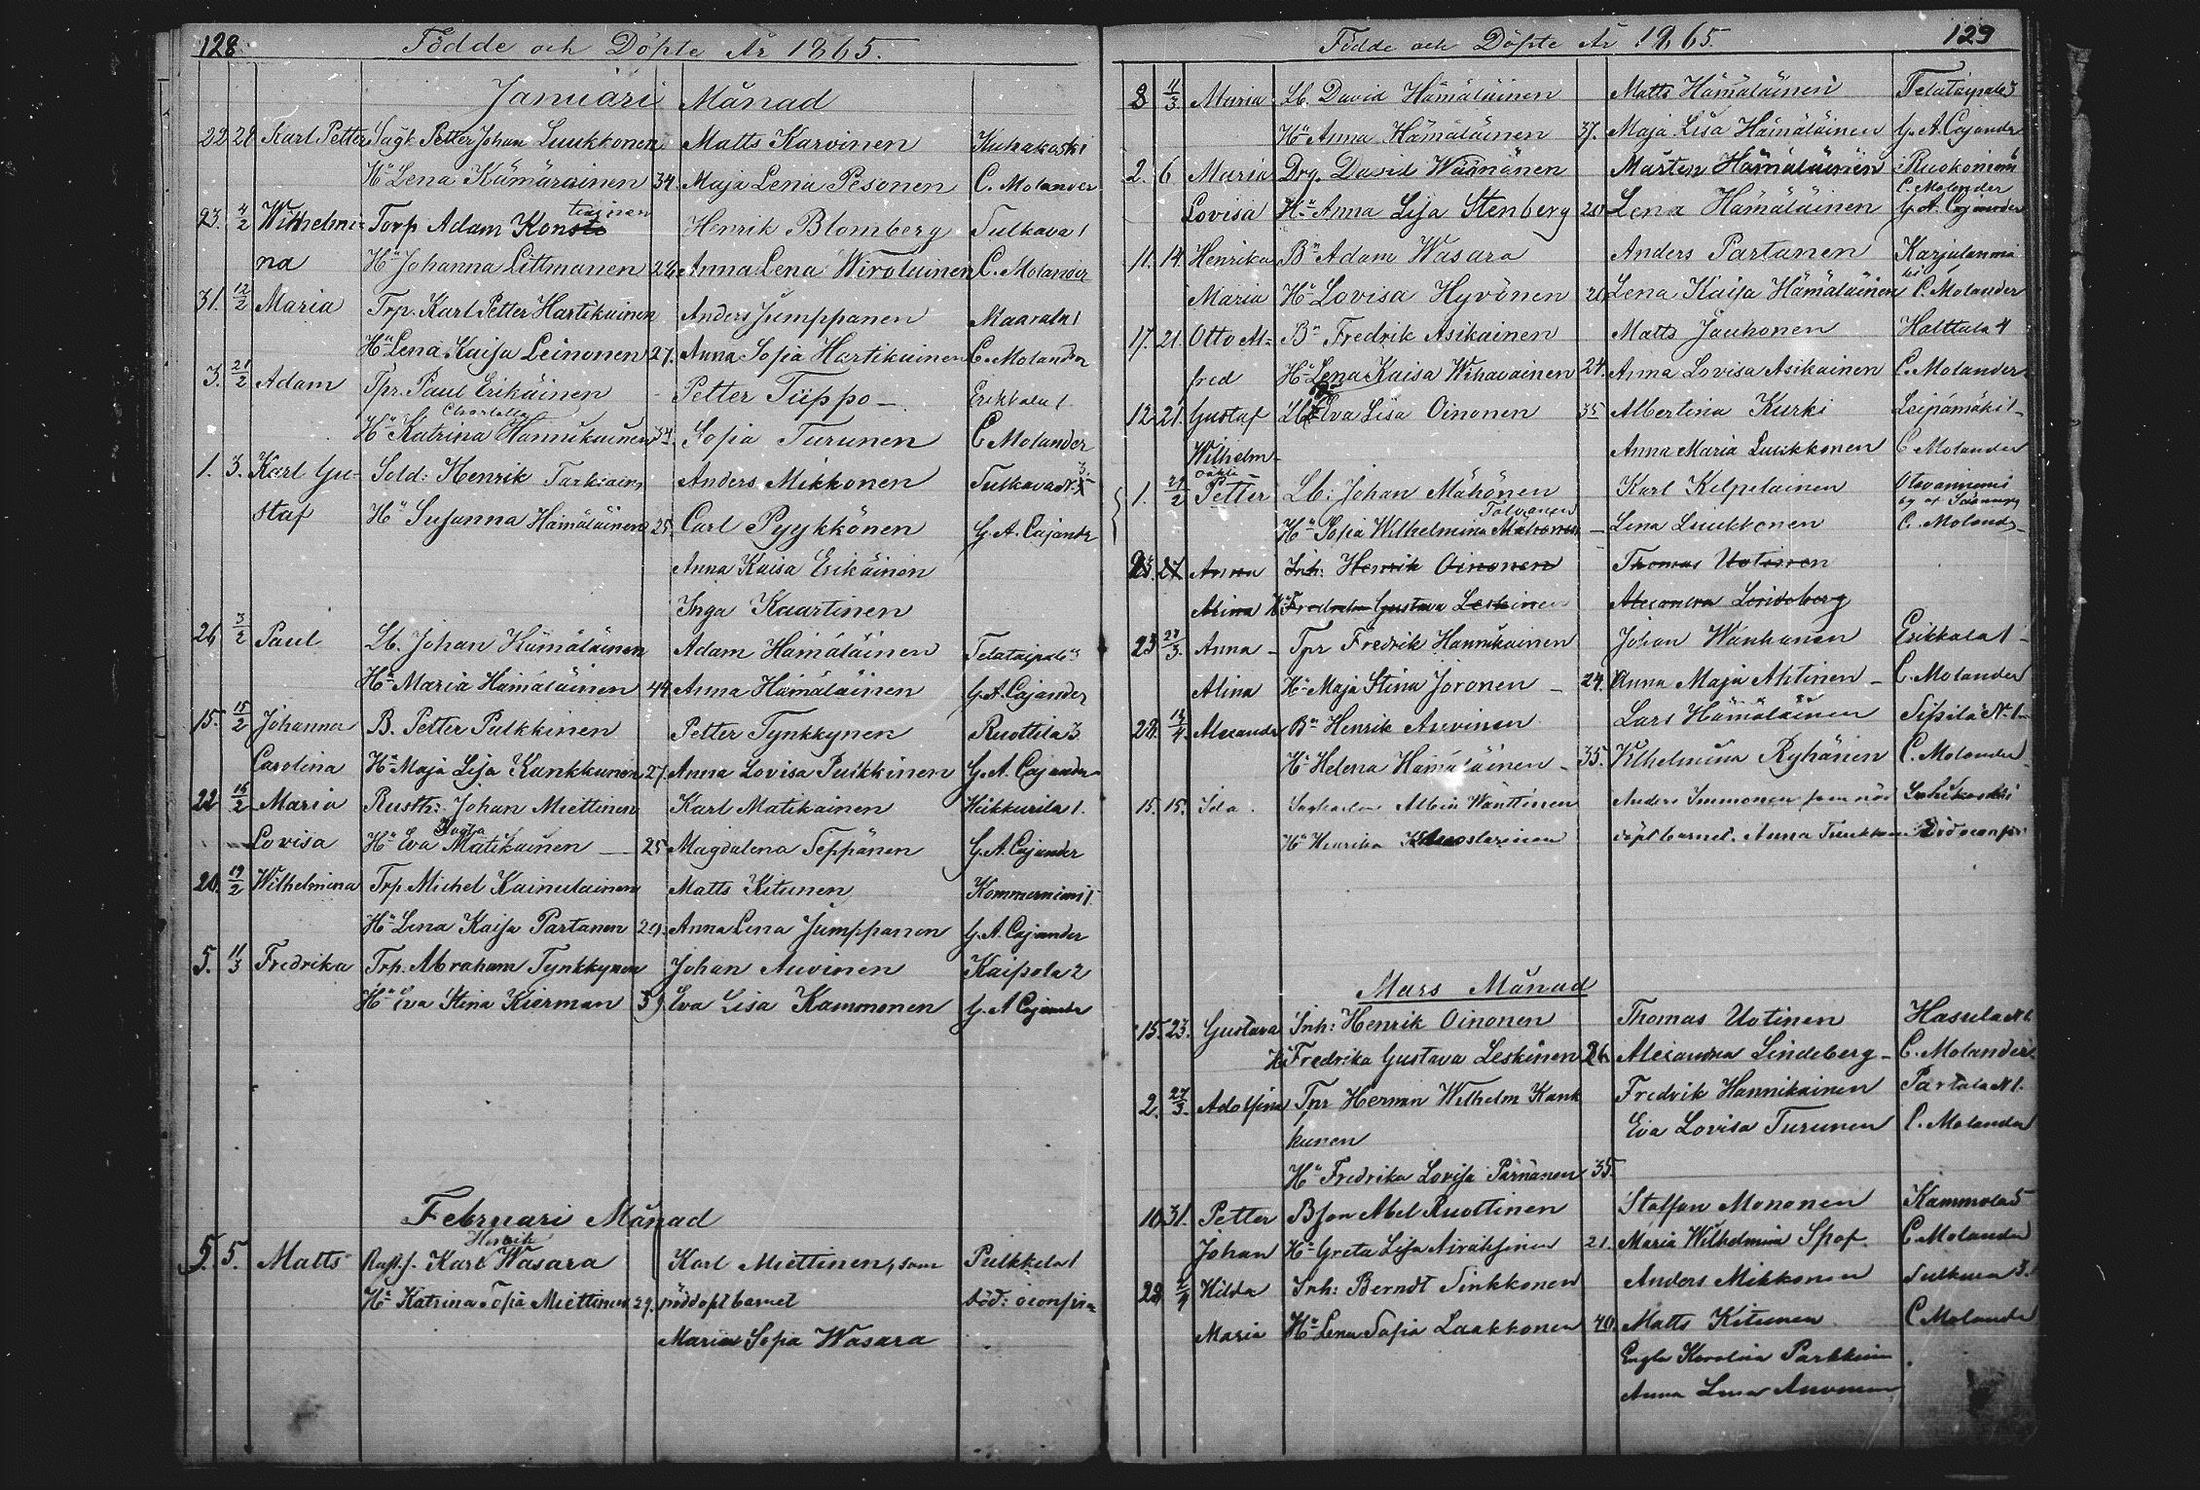 128. Födde och Döpte År 1865.
Januari Månad
22 29 Karl Petter Petter Johan Luukkonen Matts Karvinen Kuhakoski
Hu Lena Kämäräinen 34 Maja Lena Pesonen C. Molander
23. 4/2 Wilhelmi- Torp Adam Konstiainen Henrik Blomberg Sulkava 1
na Hu Johanna Littmanen 22 Anna Lena Wirolainen C. Molander
31. 12/2 Maria Trp. Karl Petter Hartikainen Anders Jumppanen Kaarala 1
Hu Lena Kaisa Leinonen 27. Anna Sofia Hartikainen C. Molander
3. 21/2 Adam Tpr. Paul Erikäinen Petter Tiippo Erikkala 1
Charlotta
Hu Katrina Hannikainen 34 Sofia Turunen C Molander
1. 3. Karl Gu- Sold: Henrik Tarkiain Anders Mikkonen Sulkava N. 3
staf Hu Susanna Hämäläinen 25. Carl Pyykkönen G. A. Cajander
Anna Kaisa Erikäinen
Inga Kaartinen
26 3/2 Paul Lb. Johan Hämäläinen Adam Hämäläinen Telataipale 3
Hu Maria Hämäläinen 44. Anna Hämäläinen G. A. Cajander
15. 15/2 Johanna B. Petter Pulkkinen Petter Tynkkynen Ruottila 3
Carolina Hu Maja Lisa Kankkunen 27. Anna Lovisa Pulkkinen G. A. Cajander
22 15/2 Maria Rusth: Johan Miettinen Karl Matikainen Heikkurila 1.
Lovisa Hu Eva Matikainen 25 Magdalena Seppänen G. A. Cajander
20. 19/2 Wilhelmina Trp Michel Kainulainen Matts Kitunen Kommerniemi 1.
Hu Lena Kaisa Partanen 29. Anna Lena Jumppanen G. A. Cajander
5. 11/3 Fredrika Trp. Abraham Tynkkynen Johan Auvinen Kaipola 2
Hu Eva Stina Kierman 39 Eva Lisa Kammonen G. A Cajander
Februari Månad
Henrik
5. 5. Matts Karl Wasara Karl Miettinen, som Pulkkila 1
Hu Katrina Sofia Miettinen 29. nöddöpt barnet död: oconfir
Maria Sofia Wasara
Födde och Döpte År 1865. 129
8 11/3 Maria Lb. David Hämäläinen Matts Hämäläinen Telataipale 3
Hu Anna Hämäläinen 37. Maja Lisa Hämäläinen G. A. Cajander
2. 6 Maria Drg. David Wäänänen Mårten Hämäläinen Ruokoniemi
C. Molander
Lovisa Hu Anna Lisa Stenberg 20 Lena Hämäläinen G. A. Cajander
11. 14. Henrika Bn Adam Wasara Anders Partanen Karjulanmä
ki
Maria Hu Lovisa Hyvönen 20 Lena Kaisa Hämäläinen C. Molander
17. 21. Otto Al- Bn Fredrik Asikainen Matts Jauhonen Halttula 4
fred Hu Lena Kaisa Wihavainen 24. Anna Lovisa Asikainen C. Molander
12. 21. Gustaf Eva Lisa Oinonen 35 Albertina Kurki Leipämäki 1
Wilhelm Anna Maria Luukkonen C Molander
oäkta
1. 27/2 Petter Lb: Johan Mähönen Karl Kilpeläinen Otavaniemi
Tolvanen
Hu Sofia Wilhelmina Mähönen Lena Luukkonen C. Molander
23. 27 Anna Inh: Henrik Oinonen Thomas Uotinen
Alina Hu Fredrika Gustava Leskinen Alexandra Lindeberg
23 27/3. Anna Tpr Fredrik Hannikainen Johan Wanhanen Erikkala 1
Alina Hu Maja Stina Joronen 24. Anna Maja Ahtinen C. Molander
28. 14/4. Alexander Bn Henrik Auvinen Lars Hämäläinen Sipilä N. 1
Hu Helena Hämäläinen 35. Wilhelmina Ryhänen C. Molander
15. 15. Ida Albin Wänttinen Anders Immonen som nöd
Hu Henrika döpt barnet. Anna död oconfir
Mars Månad
15. 23. Gustava Inh: Henrik Oinonen Thomas Uotinen Hasula N 1.
Hu Fredrika Gustava Leskinen 26 Alexandra Lindeberg C. Molander
2. 27/3. Adolfina Tpr Herman Wilhelm Kank Fredrik Hannikainen Partala N 1.
kunen Eva Lovisa Turunen C. Molander
Hu Fredrika Lovisa Pärnänen 35.
10. 31. Petter Bson Abel Ruottinen Staffan Mononen Kammola 5
Johan Hu Greta Lisa Airaksinen 21. Maria Wilhelmina Spof. C Molander
22 2/4 Hilda Inh: Berndt Sinkkonen Anders Mikkonen Sulkava 3.
Maria Hu Lena Sofia Laakkonen 40. Matts Kitunen C Molander
Engla Karolina Parkkinen
Anna Lena Auvinen